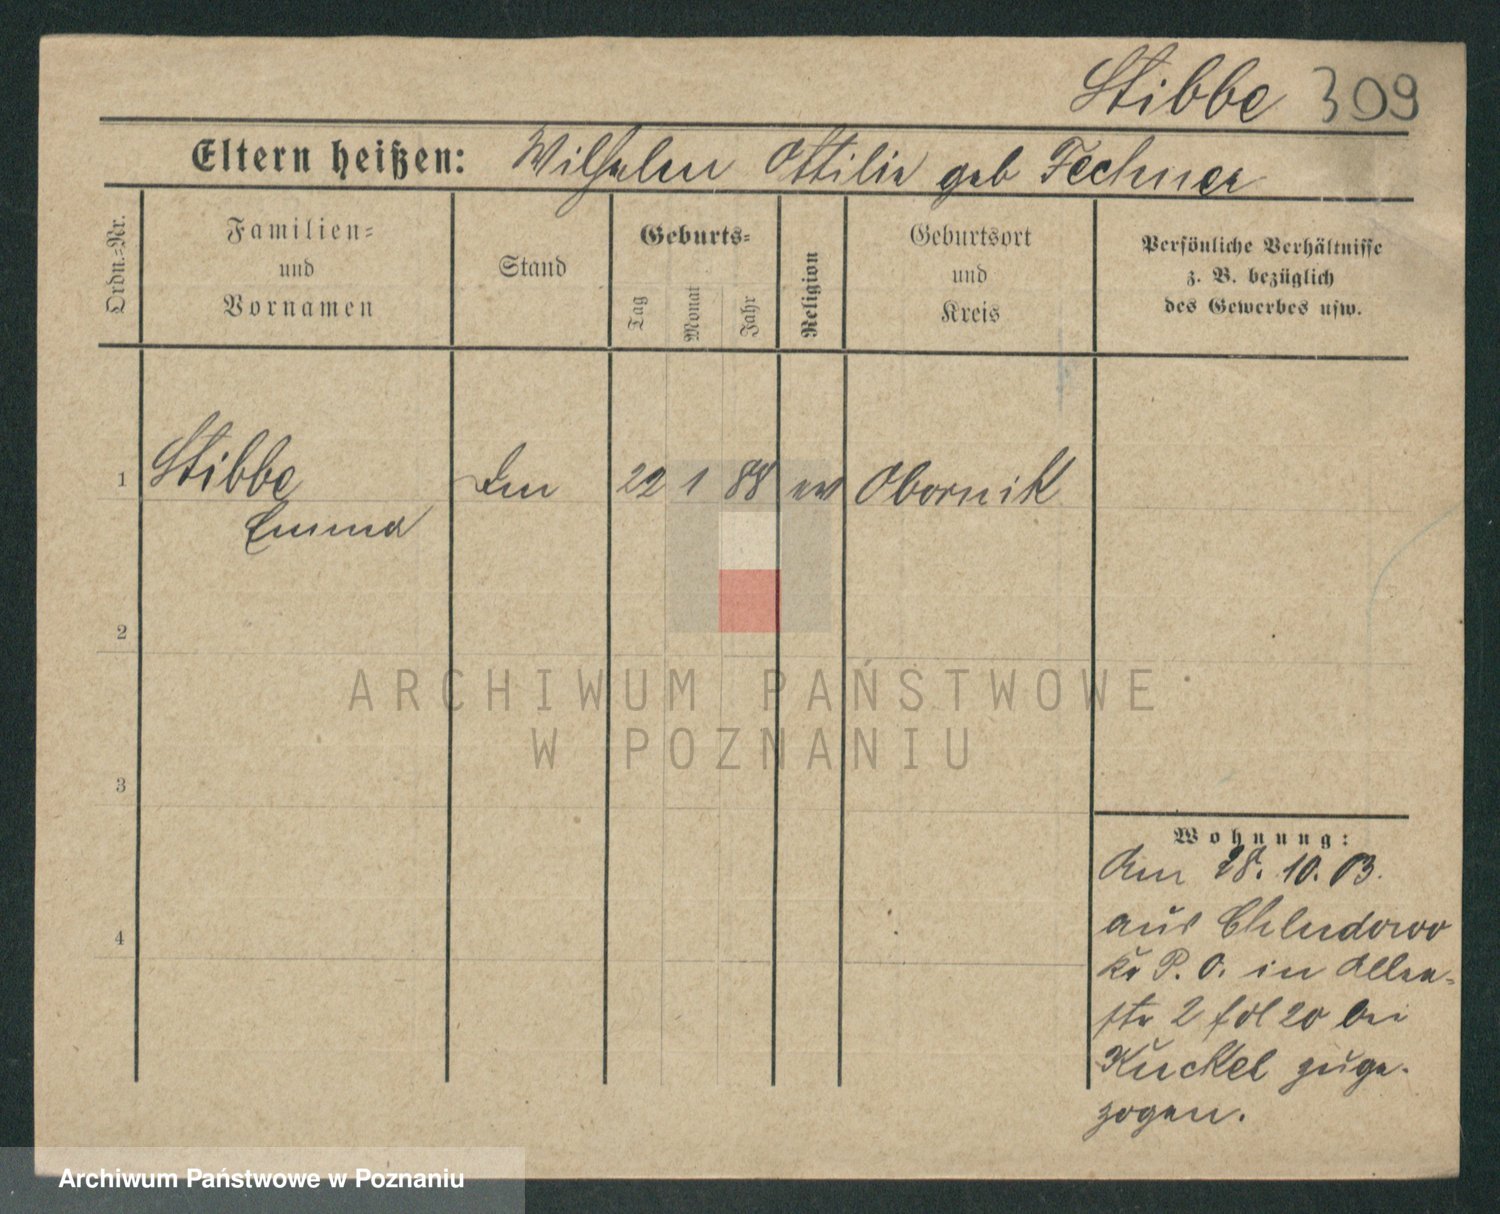 Stibbe 309
Eltern heißen: Wilhelm Ottilie geb Fechner
Ordn.=Nr.
Familien=
und
Vornamen
Stand
Geburts=
Tag
Monat
Jahr
Religion
Geburtsort
und
Kreis
Persönliche Verhältnisse
z. B. bezüglich
des Gewerbes usw.
1 Stibbe 22 1 88 ev Obornik
Emma
2
3
4
Wohnung:
Am 28. 10. 03.
aus Chludowo
Kr P. O. in Allen-
str 2 fol 20 bei
Kuckel zuge-
zogen.
ARCHIWUM PAŃSTWOWE
W POZNANIU
Archiwum Państwowe w Poznaniu